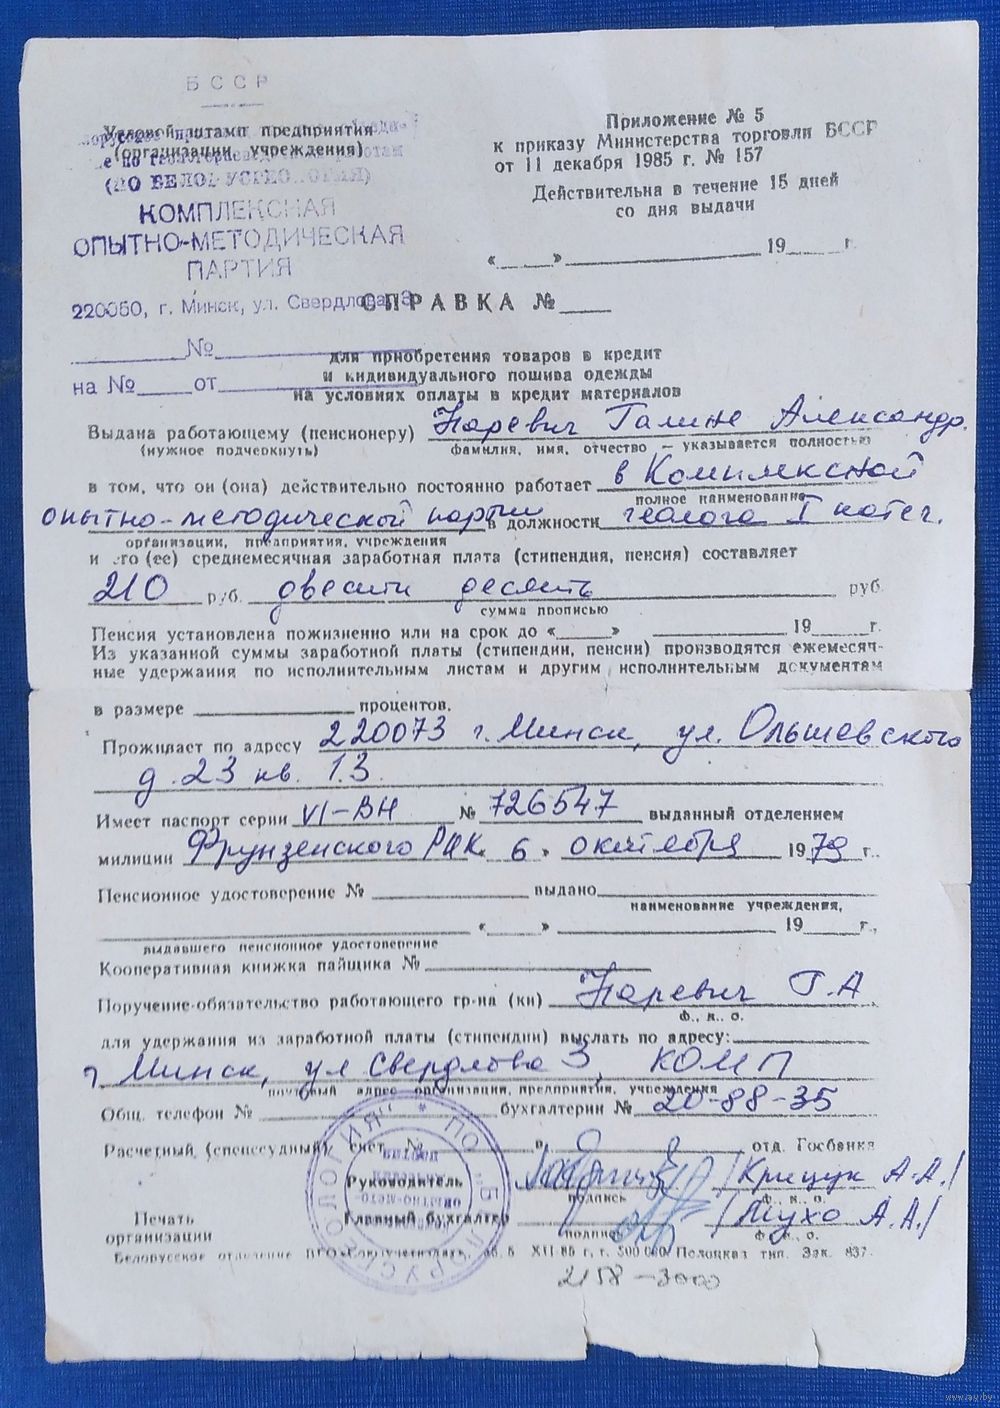 БССР
Угловой штамп предприятия
(организации, учреждения)
КОМПЛЕКСНАЯ
ОПЫТНО-МЕТОДИЧЕСКАЯ
ПАРТИЯ
220050, г. Минск, ул. Свердлова, 3
№
на № от
Приложение № 5
к приказу Министерства торговли БССР
от 11 декабря 1985 г. № 157
Действительна в течение 15 дней
со дня выдачи
« » 19 г.
СПРАВКА №
для приобретения товаров в кредит
и индивидуального пошива одежды
на условиях оплаты в кредит материалов
Выдана работающему (пенсионеру) Царевич Галине Александр.
(нужное подчеркнуть) фамилия, имя, отчество — указывается полностью
в том, что он (она) действительно постоянно работает в Комплексной
полное наименование
опытно-методической партии в должности геолога I катег.
организации, предприятия, учреждения
и его (ее) среднемесячная заработная плата (стипендия, пенсия) составляет
210 руб. двести десять руб.
сумма прописью
Пенсия установлена пожизненно или на срок до « » 19 г.
Из указанной суммы заработной платы (стипендии, пенсии) производятся ежемесяч-
ные удержания по исполнительным листам и другим исполнительным документам
в размере процентов.
Проживает по адресу 220073 г. Минск, ул. Ольшевского
д. 23 кв. 13.
Имеет паспорт серии VI-ВН № 726547 выданный отделением
милиции Фрунзенского 6 » октября 1979 г.
Пенсионное удостоверение № выдано
наименование учреждения,
« » 19 г.,
выдавшего пенсионное удостоверение
Кооперативная книжка пайщика №
Поручение-обязательство работающего гр-на (ки) Царевич Г.А.
ф., и., о.
для удержания из заработной платы (стипендии) выслать по адресу:
г. Минск, ул Свердлова 3, КОМП
почтовый адрес организации, предприятия, учреждения
Общ. телефон № бухгалтерии № 20-88-35
Расчетный (спецссудный) счет № в отд. Госбанка
Руководитель /Крищук А.А./
подпись ф., и., о.
Главный бухгалтер /Мухо А.А./
подпись ф., и., о.
Печать
организации
Белорусское отделение ВГО Союзучетиздат, XII-85 г. т. 500 000, Полоцкая тип. Зак. 837.
2158-3000
www.ay.by